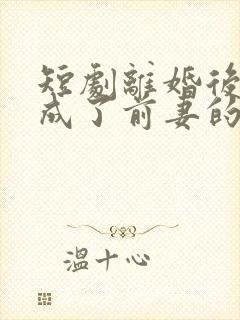 短劇離婚後
成了前妻的
溫十心